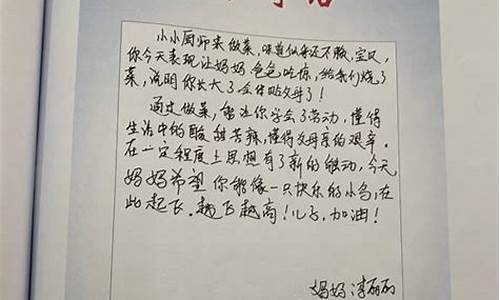 小小厨师来做菜，味道似乎还不赖，宝贝，
你今天表现让妈妈爸爸吃惊，给我们烧了
菜，说明你长大了，会体贴父母了！
通过做菜，看法你学会了劳动，懂得
生活中的酸甜苦辣，懂得父母亲的艰辛。
在一定程度上思想有了新的触动，今天
妈妈希望你能像一只快乐的小鸟，在
此起飞，越飞越高！儿子，加油！
妈妈 李丽丽